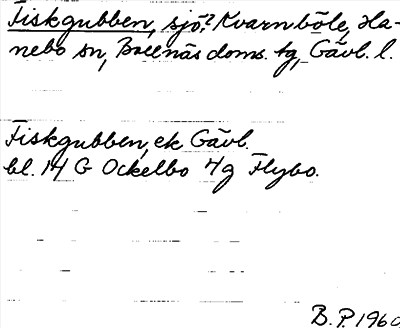 Fiskgubben, sjö? Kvarnböle, Ha-
nebo sn, Bollnäs doms. tg, Gävl. l.
Fiskgubben, ek Gävl.
bl. 14 G Ockelbo 4g Flybo.
B.P. 1960